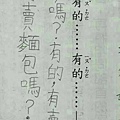 有的……有的……
嗎？有的，有賣
賣麵包嗎？